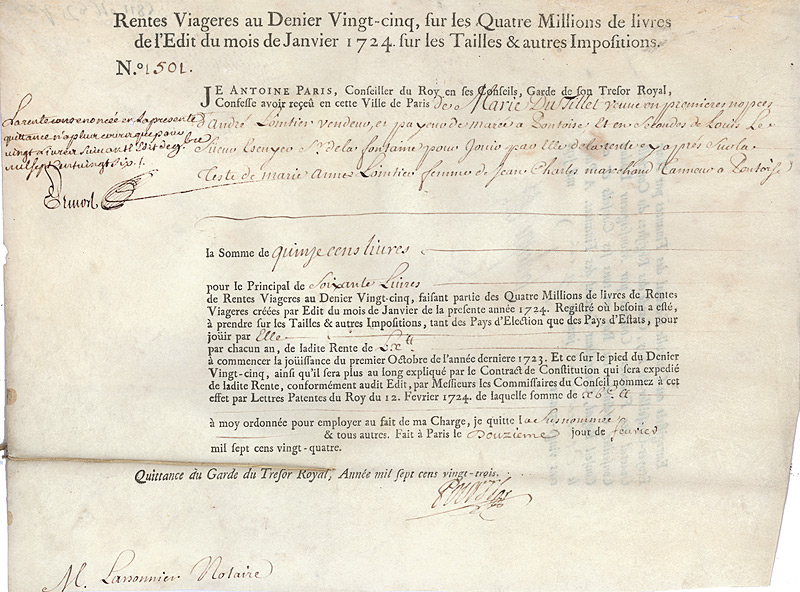 Rentes Viageres au Denier Vingt-cinq, sur les Quatre Millions de livres
de l'Edit du mois de Janvier 1724. sur les Tailles & autres Impositions.
N.º 1501.
JE ANTOINE PARIS, Conseiller du Roy en ses Conseils, Garde de son Tresor Royal,
Confesse avoir reçeû en cette Ville de Paris de Marie Du Tillet veuve en premieres nopces
d'andré Lointier vendeur, et payeur de marée a Pontoise Et en secondes de Louis Le
Sueur Escuyer Sr. de la fontaine pour Jouir par Elle de la rente cy apres Sur la
Teste de marie Anne Lointier femme de Jean Charles marchand Tanneur a Pontoise
La rente cons enoncée en la presente
quittance n'a plus couru que pour
vingt Livres
mil sept cent vingt six
la Somme de quinze cens livres
pour le Principal de Soixante Livres
de Rentes Viageres au Denier Vingt-cinq, faisant partie des Quatre Millions de livres de Rentes
Viageres créées par Edit du mois de Janvier de la presente année 1724. Registré où besoin a esté,
à prendre sur les Tailles & autres Impositions, tant des Pays d'Election que des Pays d'Estats, pour
joüir par Elle
par chacun an, de ladite Rente de Lx.tt
à commencer la joüissance du premier Octobre de l'année derniere 1723. Et ce sur le pied du Denier
Vingt-cinq, ainsi qu'il sera plus au long expliqué par le Contract de Constitution qui sera expedié
de ladite Rente, conformément audit Edit, par Messieurs les Commissaires du Conseil nommez à cet
effet par Lettres Patentes du Roy du 12. Fevrier 1724. de laquelle somme de
à moy ordonnée pour employer au fait de ma Charge, je quitte la Susnommée
& tous autres. Fait à Paris le Douzieme jour de fevrier
mil sept cens vingt-quatre.
Quittance du Garde du Tresor Royal, Année mil sept cens vingt-trois.
M. Larsonnier Notaire